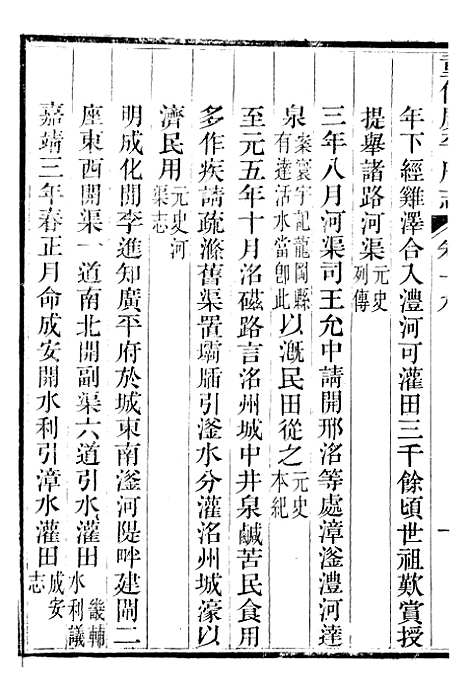 重修廣平府志
卷十九
年下經雞澤合入澧河可灌田三千餘頃世祖歎賞授
提舉諸路河渠元史列傳
三年八月河渠司王允中請開邢洺等處漳滏澧河達
泉案寰宇記龍岡縣有達活水當卽此以漑民田從之元史本紀
至元五年十月洺磁路言洺州城中井泉鹹苦民食用
多作疾請疏滌舊渠置壩牐引滏水分灌洺州城濠以
濟民用元史河渠志
明成化間李進知廣平府於城東南滏河隄畔建閘二
座東西開渠一道南北開副渠六道引水灌田畿輔水利議
嘉靖三年春正月命成安開水利引漳水灌田成安志